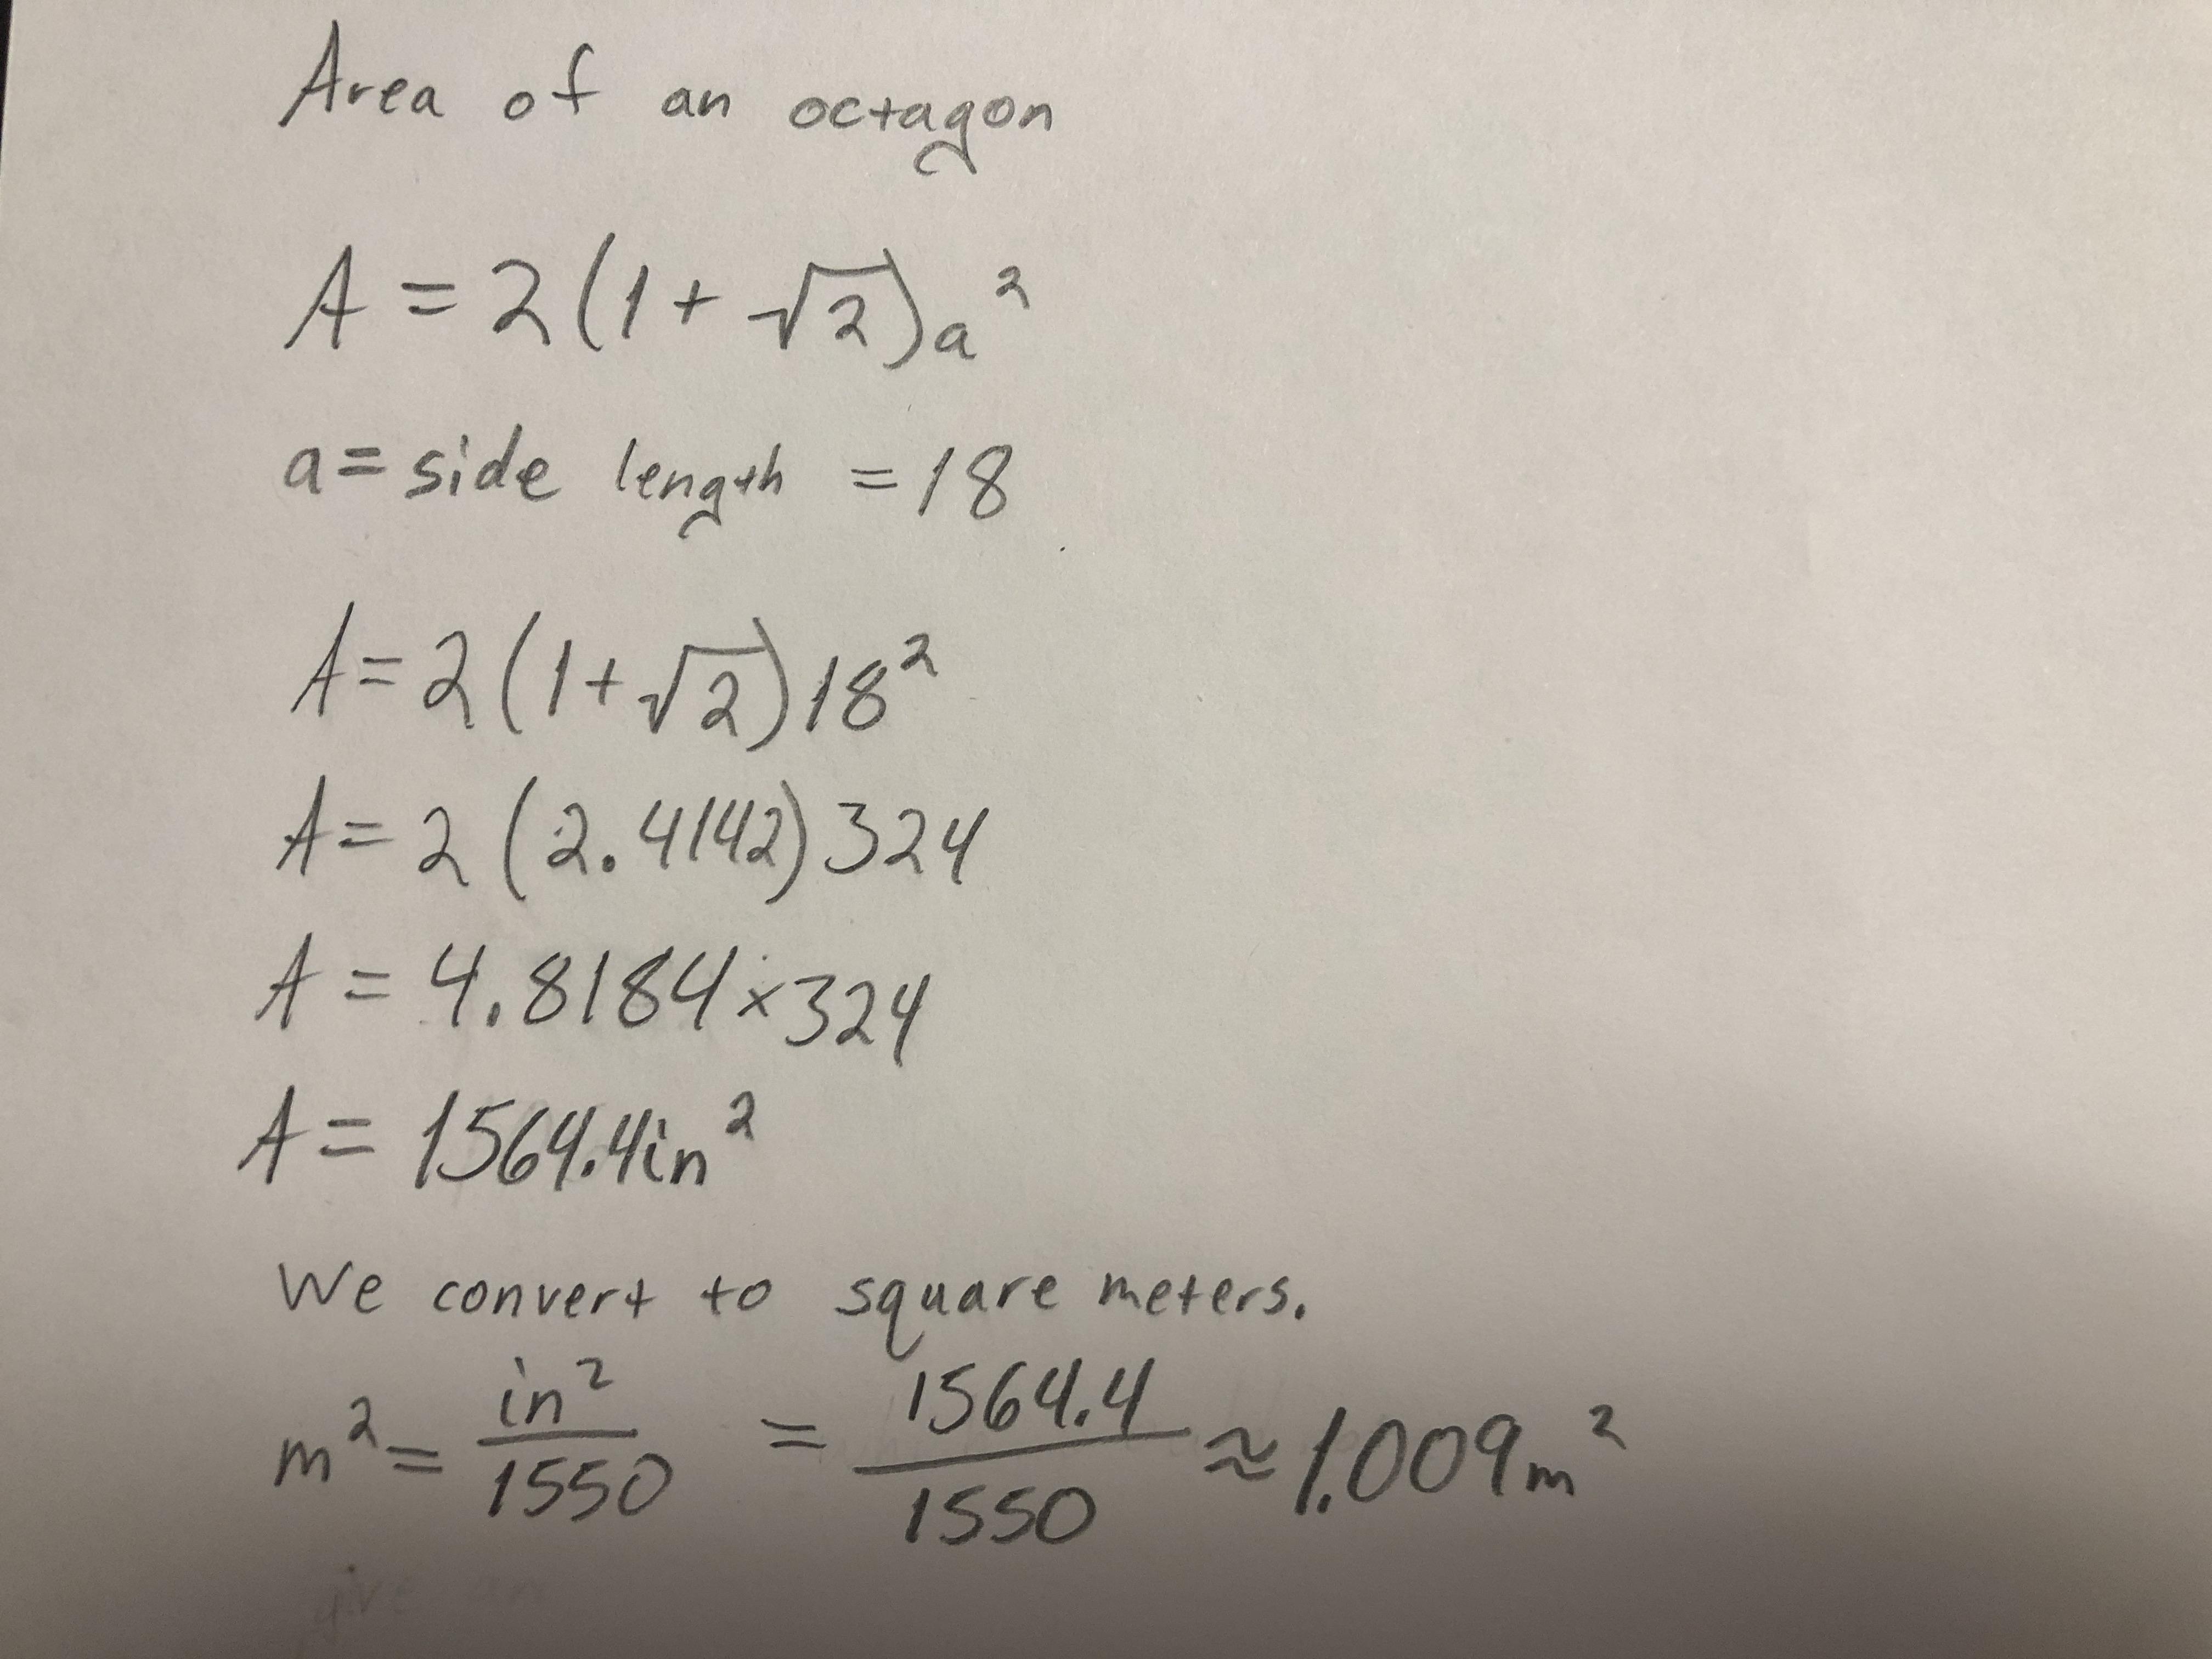 Area of an octagon
A = 2(1 + √2)a²
a = side length = 18
A = 2(1 + √2)18²
A = 2(2.4142)324
A = 4.8184 × 324
A = 1564.4in²
We convert to square meters.
m² = in²/1550 = 1564.4/1550 ≈ 1.009m²